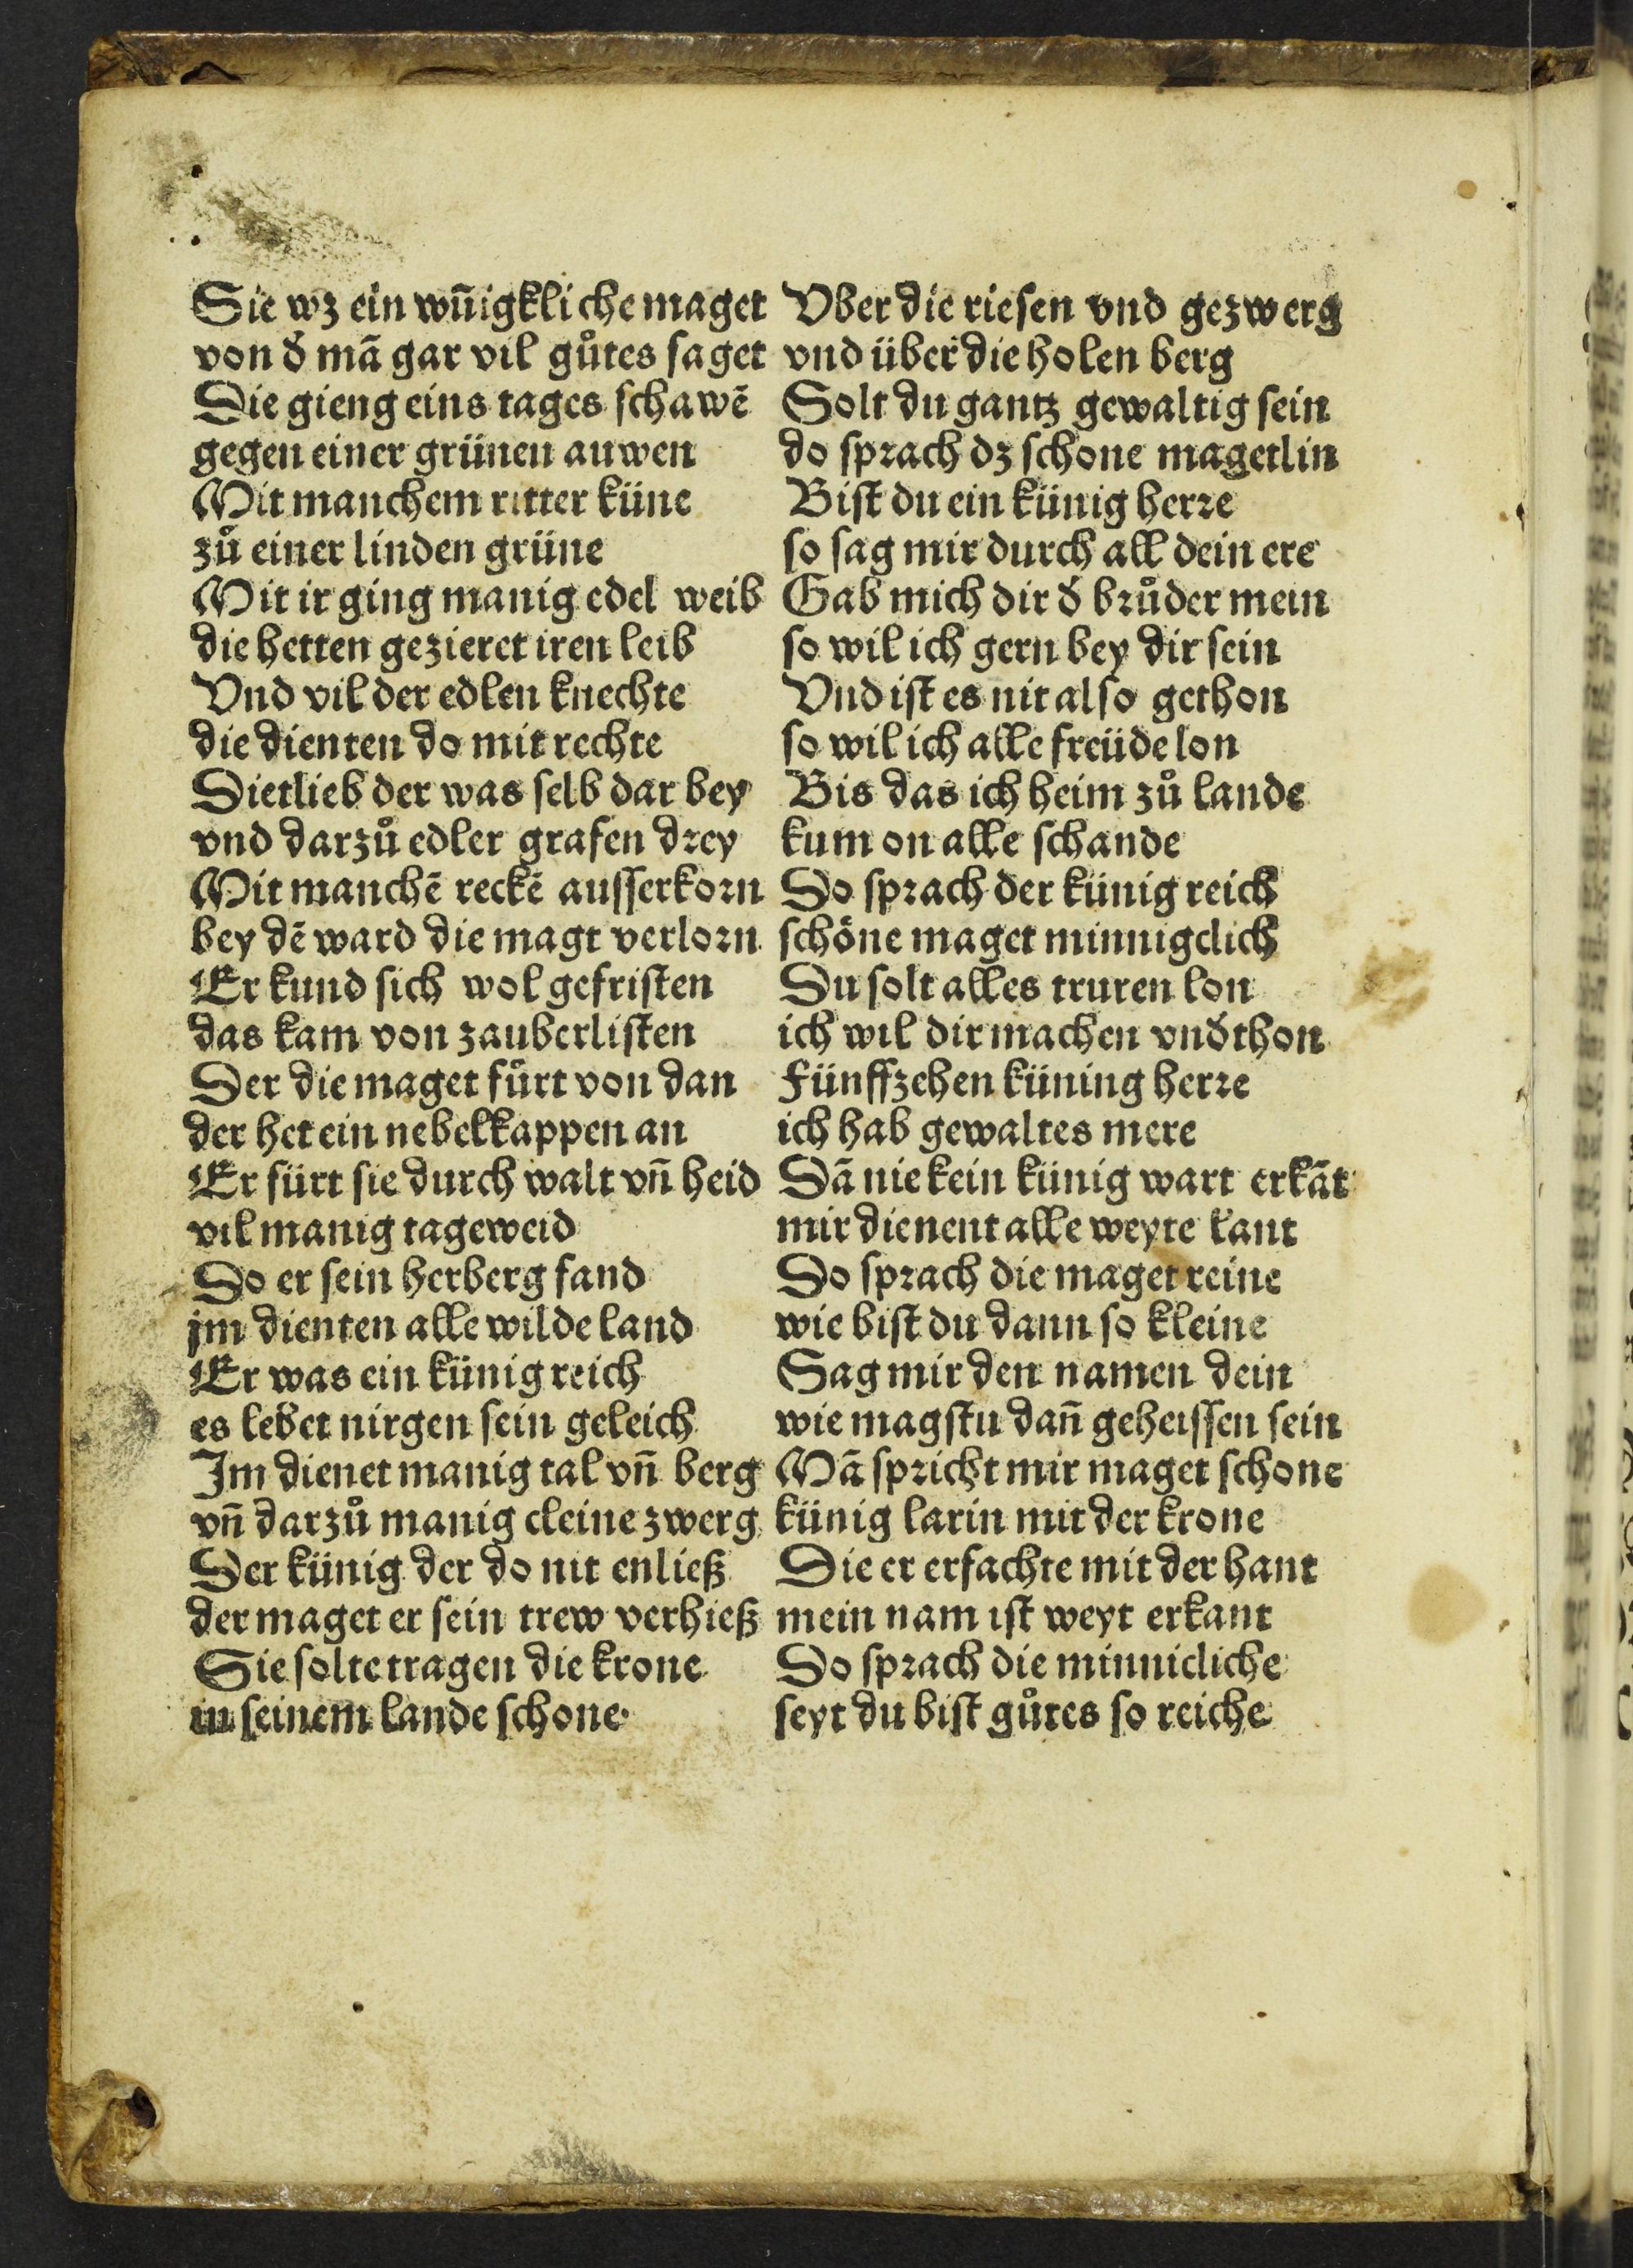 Sie wz ein wn̄igkliche maget
von d̕ mā gar vil gůtes saget
Die gieng eins tages schawē
gegen einer grünen auwen
Mit manchem ritter küne
zů einer linden grüne
Mit ir ging manig edel weib
die hetten gezieret iren leib
Vnd vil der edlen knechte
die dienten do mit rechte
Dietlieb der was selb dar bey
vnd darzů edler grafen drey
Mit manchē reckē ausserkorn
bey dē ward die magt verlorn
Er kund sich wol gefristen
das kam von zauberlisten
Der die maget fůrt von dan
der het ein nebelkappen an
Er fürt sie durch walt vn̄ heid
vil manig tageweid
Do er sein herberg fand
jm dienten alle wilde land
Er was ein künig reich
es lebet nirgen sein geleich
Im dienet manig tal vn̄ berg
vn̄ darzů manig cleine zwerg
Der künig der do nit enließ
der maget er sein trew verhieß
Sie solte tragen die krone
in seinem lande schone·
Vber die riesen vnd gezwerg
vnd über die holen berg
Solt du gantz gewaltig sein
do sprach dz schone magetlin
Bist du ein künig herre
so sag mir durch all dein ere
Gab mich dir d̕ brůder mein
so wil ich gern bey dir sein
Vnd ist es nit also gethon
so wil ich alle freüde lon
Bis das ich heim zů lande
kum on alle schande
Do sprach der künig reich
schöne maget minnigclich
Du solt alles truren lon
ich wil dir machen vnd̕thon
Fünffzehen küning herre
ich hab gewaltes mere
Dā nie kein künig wart erkāt
mir dienent alle weyte lant
Do sprach die maget reine
wie bist du dann so kleine
Sag mir den namen dein
wie magstu dan̄ geheissen sein
Mā spricht mir maget schone
künig larin mit der krone
Die er erfachte mit der hant
mein nam ist weyt erkant
Do sprach die minnicliche
seyt du bist gůtes so reiche